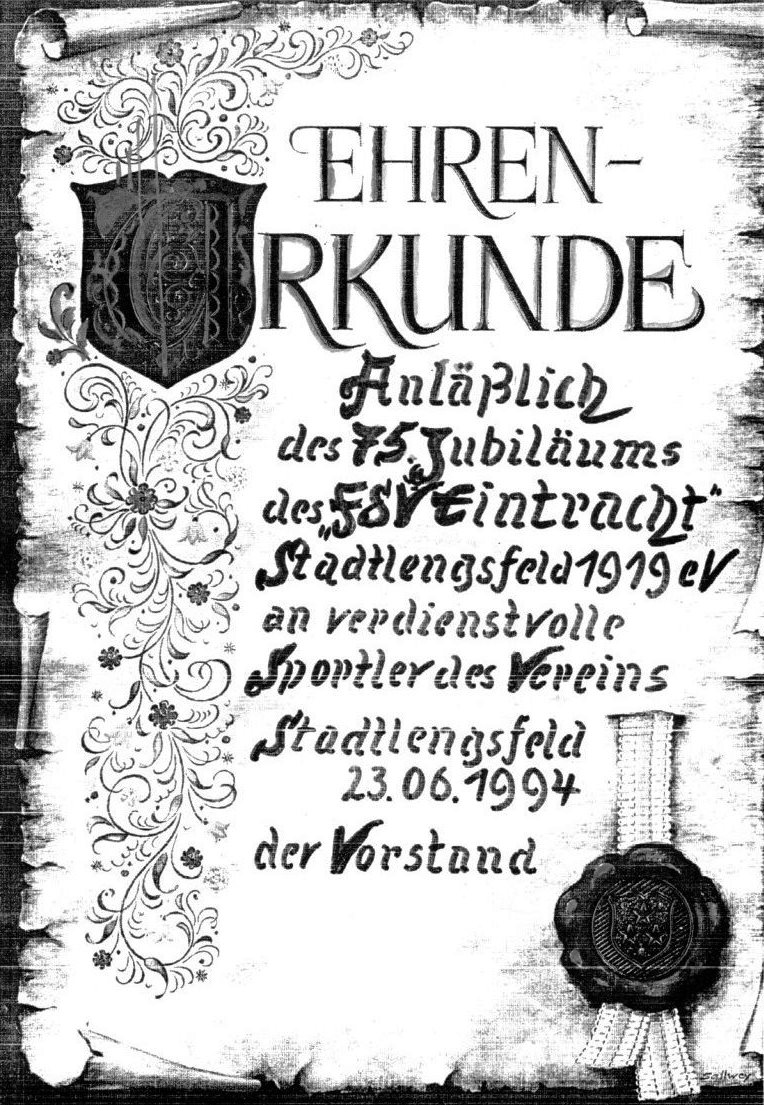 EHREN-
URKUNDE
Anläßlich
des 75. Jubiläums
des „FSV Eintracht"
Stadtlengsfeld 1919 eV
an verdienstvolle
Sportler des Vereins
Stadtlengsfeld
23.06.1994
der Vorstand